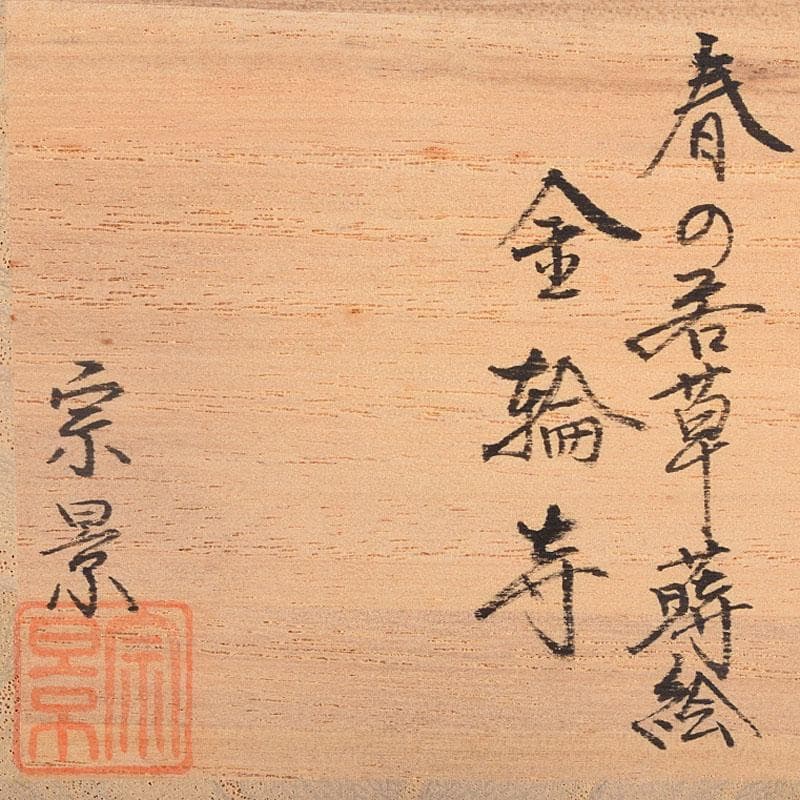 春の若草蒔絵
金輪寺
宗景
宗景